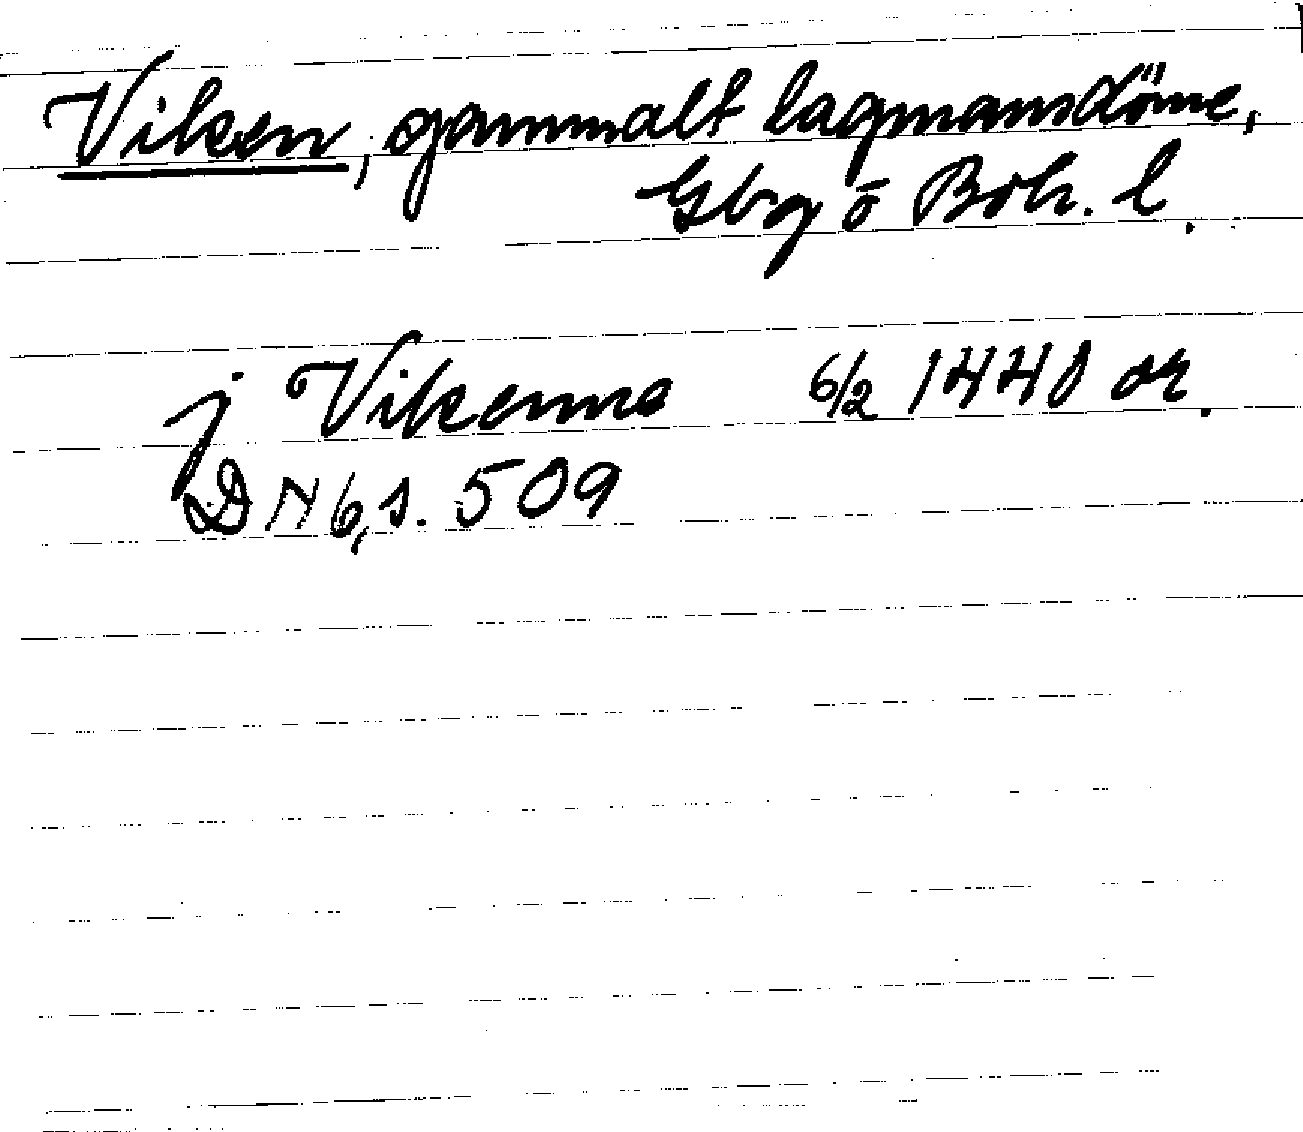 Viken, gammalt lagmansdöme,
Gbg o Boh. l.
j Vikenne 6/2 1440 or.
DN 6, s. 509